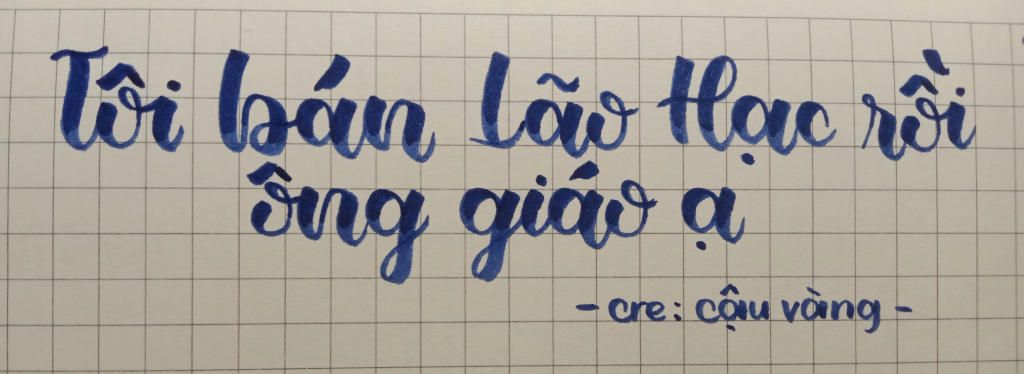 Tôi bán Lão Hạc rồi
ông giáo ạ
- cre: cậu vàng -